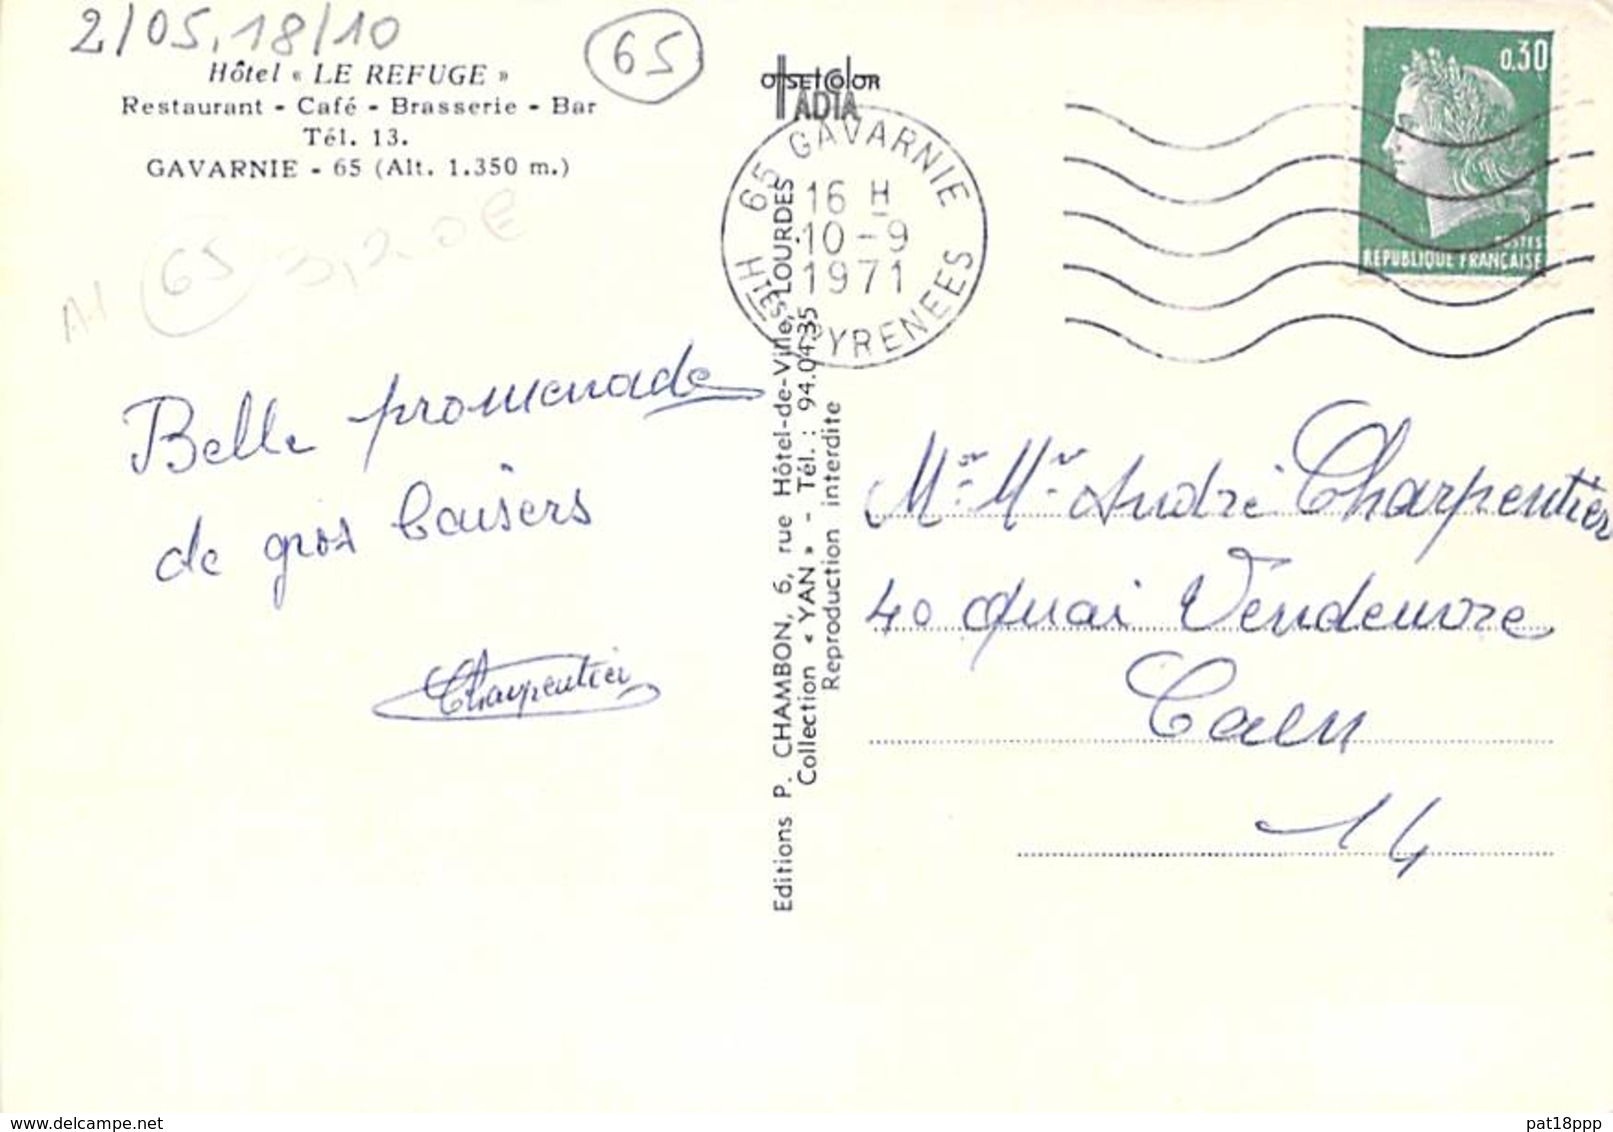 2/05, 18/10
65
Hôtel « LE REFUGE »
Restaurant - Café - Brasserie - Bar
Tél. 13.
GAVARNIE - 65 (Alt. 1.350 m.)
A1
65
3,20€
Belle promenade
de gros baisers
Charpentier
OFFSET COLOR
IADIA
65 GAVARNIE
16 H
10-9
1971
HTES PYRENEES
Editions P. CHAMBON, 6, rue Hôtel-de-Ville, LOURDES
Collection « YAN » - Tél. : 94.04.35
Reproduction interdite
0,30
POSTES
REPUBLIQUE FRANÇAISE
Mr Mr André Charpentier
40 Quai Vendeuvre
Caen
14
pat18ppp